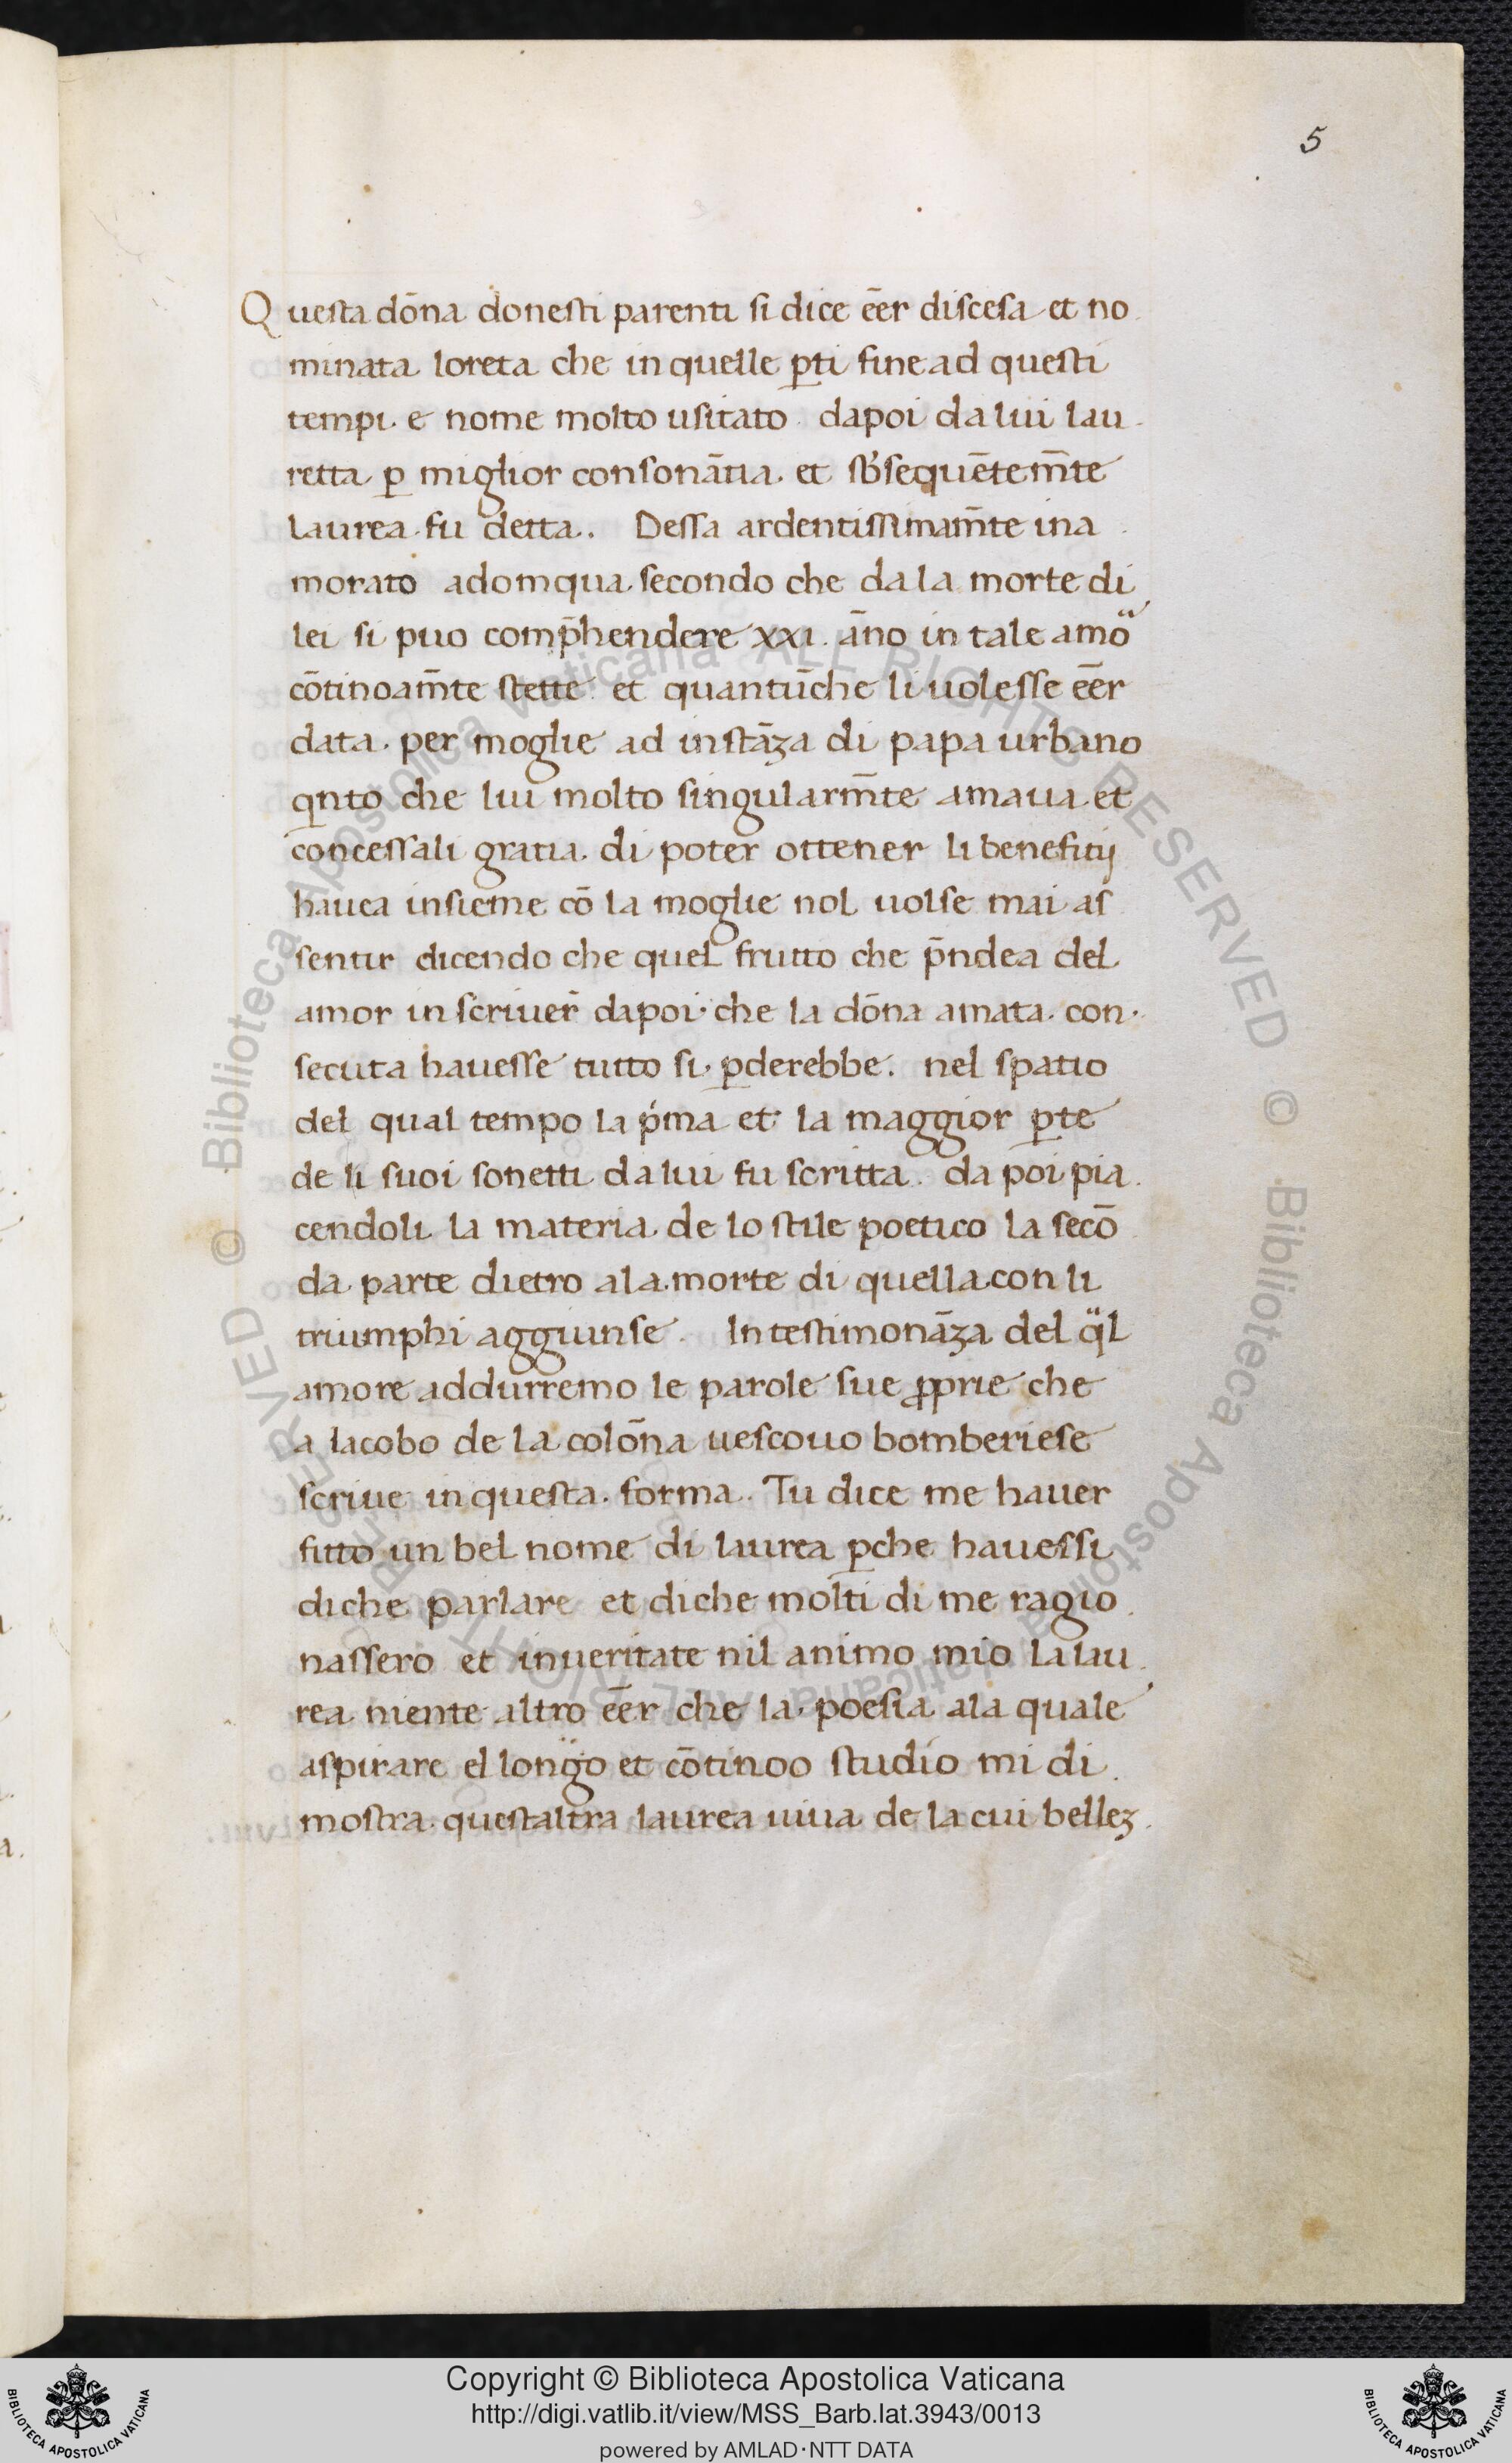 5
Questa dōna donesti parenti si dice eēr discesa et no
minata loreta che in quelle ꝑti fine ad questi
tempi e nome molto usitato dapoi da lui lau
retta ꝑ miglior consonātia et sb̄sequētem̄te
laurea fu detta. Dessa ardentissimam̄te ina
morato adomqua secondo che da la morte di
lei si puo comp̄hendere xxi. āno in tale amoᷓ
cōtinoam̄te stette et quantūche li uolesse eēr
data per moglie ad instāza di papa urbano
qnto che lui molto singularm̄te amaua et
concessali gratia di poter ottener li benefitij
hauea insieme cō la moglie nol uolse mai as
sentir dicendo che quel frutto che p̄ndea del
amor in scriuer̄ dapoi che la dōna amata con
secuta hauesse tutto si ꝑderebbe. nel spatio
del qual tempo la p̍ma et la maggior ꝑte
de li suoi sonetti da lui fu scritta. da poi pia
cendoli la materia de lo stile poetico la secō
da parte dietro ala morte di quella con li
triumphi aggiunse. In testimonāza del qᷓl
amore addurremo le parole sue ꝓprie che
a Iacobo de la colōna uescouo bomberiese
scriue in questa forma. Tu dice me hauer
fitto un bel nome di laurea ꝑche hauessi
diche parlare et diche molti di me ragio
nassero et inueritate nil animo mio la lau
rea niente altro eēr che la poesia ala quale
aspirare el longᷓo et cōtinoo studio mi di
mostra questaltra laurea uiua de la cui bellez
© Biblioteca Apostolica Vaticana ALL RIGHTS RESERVED
Copyright © Biblioteca Apostolica Vaticana
http://digi.vatlib.it/view/MSS_Barb.lat.3943/0013
powered by AMLAD·NTT DATA
BIBLIOTECA APOSTOLICA VATICANA
BIBLIOTECA APOSTOLICA VATICANA